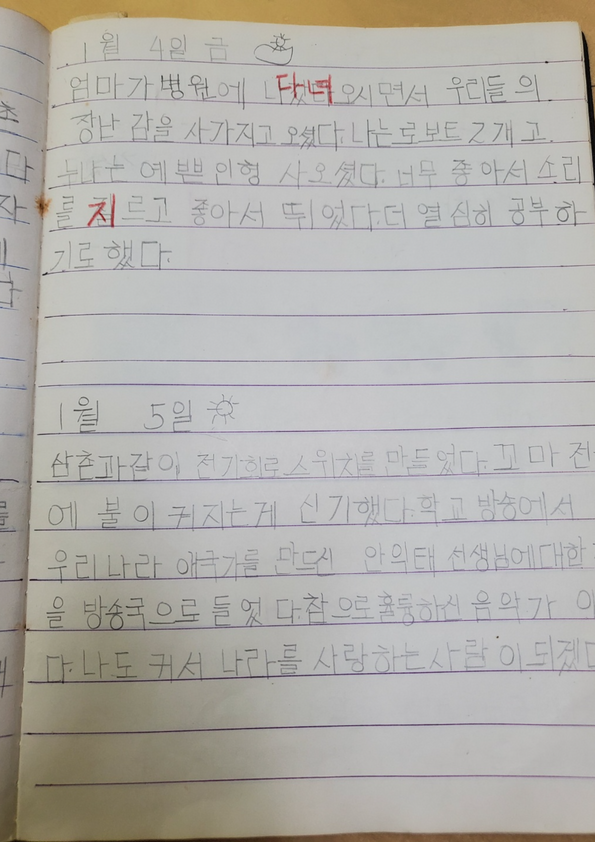 1월 4일 금
엄마가 병원에 다녀 오시면서 우리들의
장난 감을 사가지고 오셨다. 나는 로보트 2개 고
누나는 예쁜 인형 사오셨다. 너무 좋아서 소리
를 지르고 좋아서 뛰었다. 더 열심히 공부하
기로 했다.
1월 5일
삼촌과 같이 전기회로 스위치를 만들었다. 꼬마 전
에 불이 켜지는게 신기했다. 학교 방송에서
우리나라 애국가를 만드신 안익태 선생님에 대한
을 방송국으로 들었다. 참으로 훌륭하신 음악가
다. 나도 커서 나라를 사랑하는 사람이 되겠다